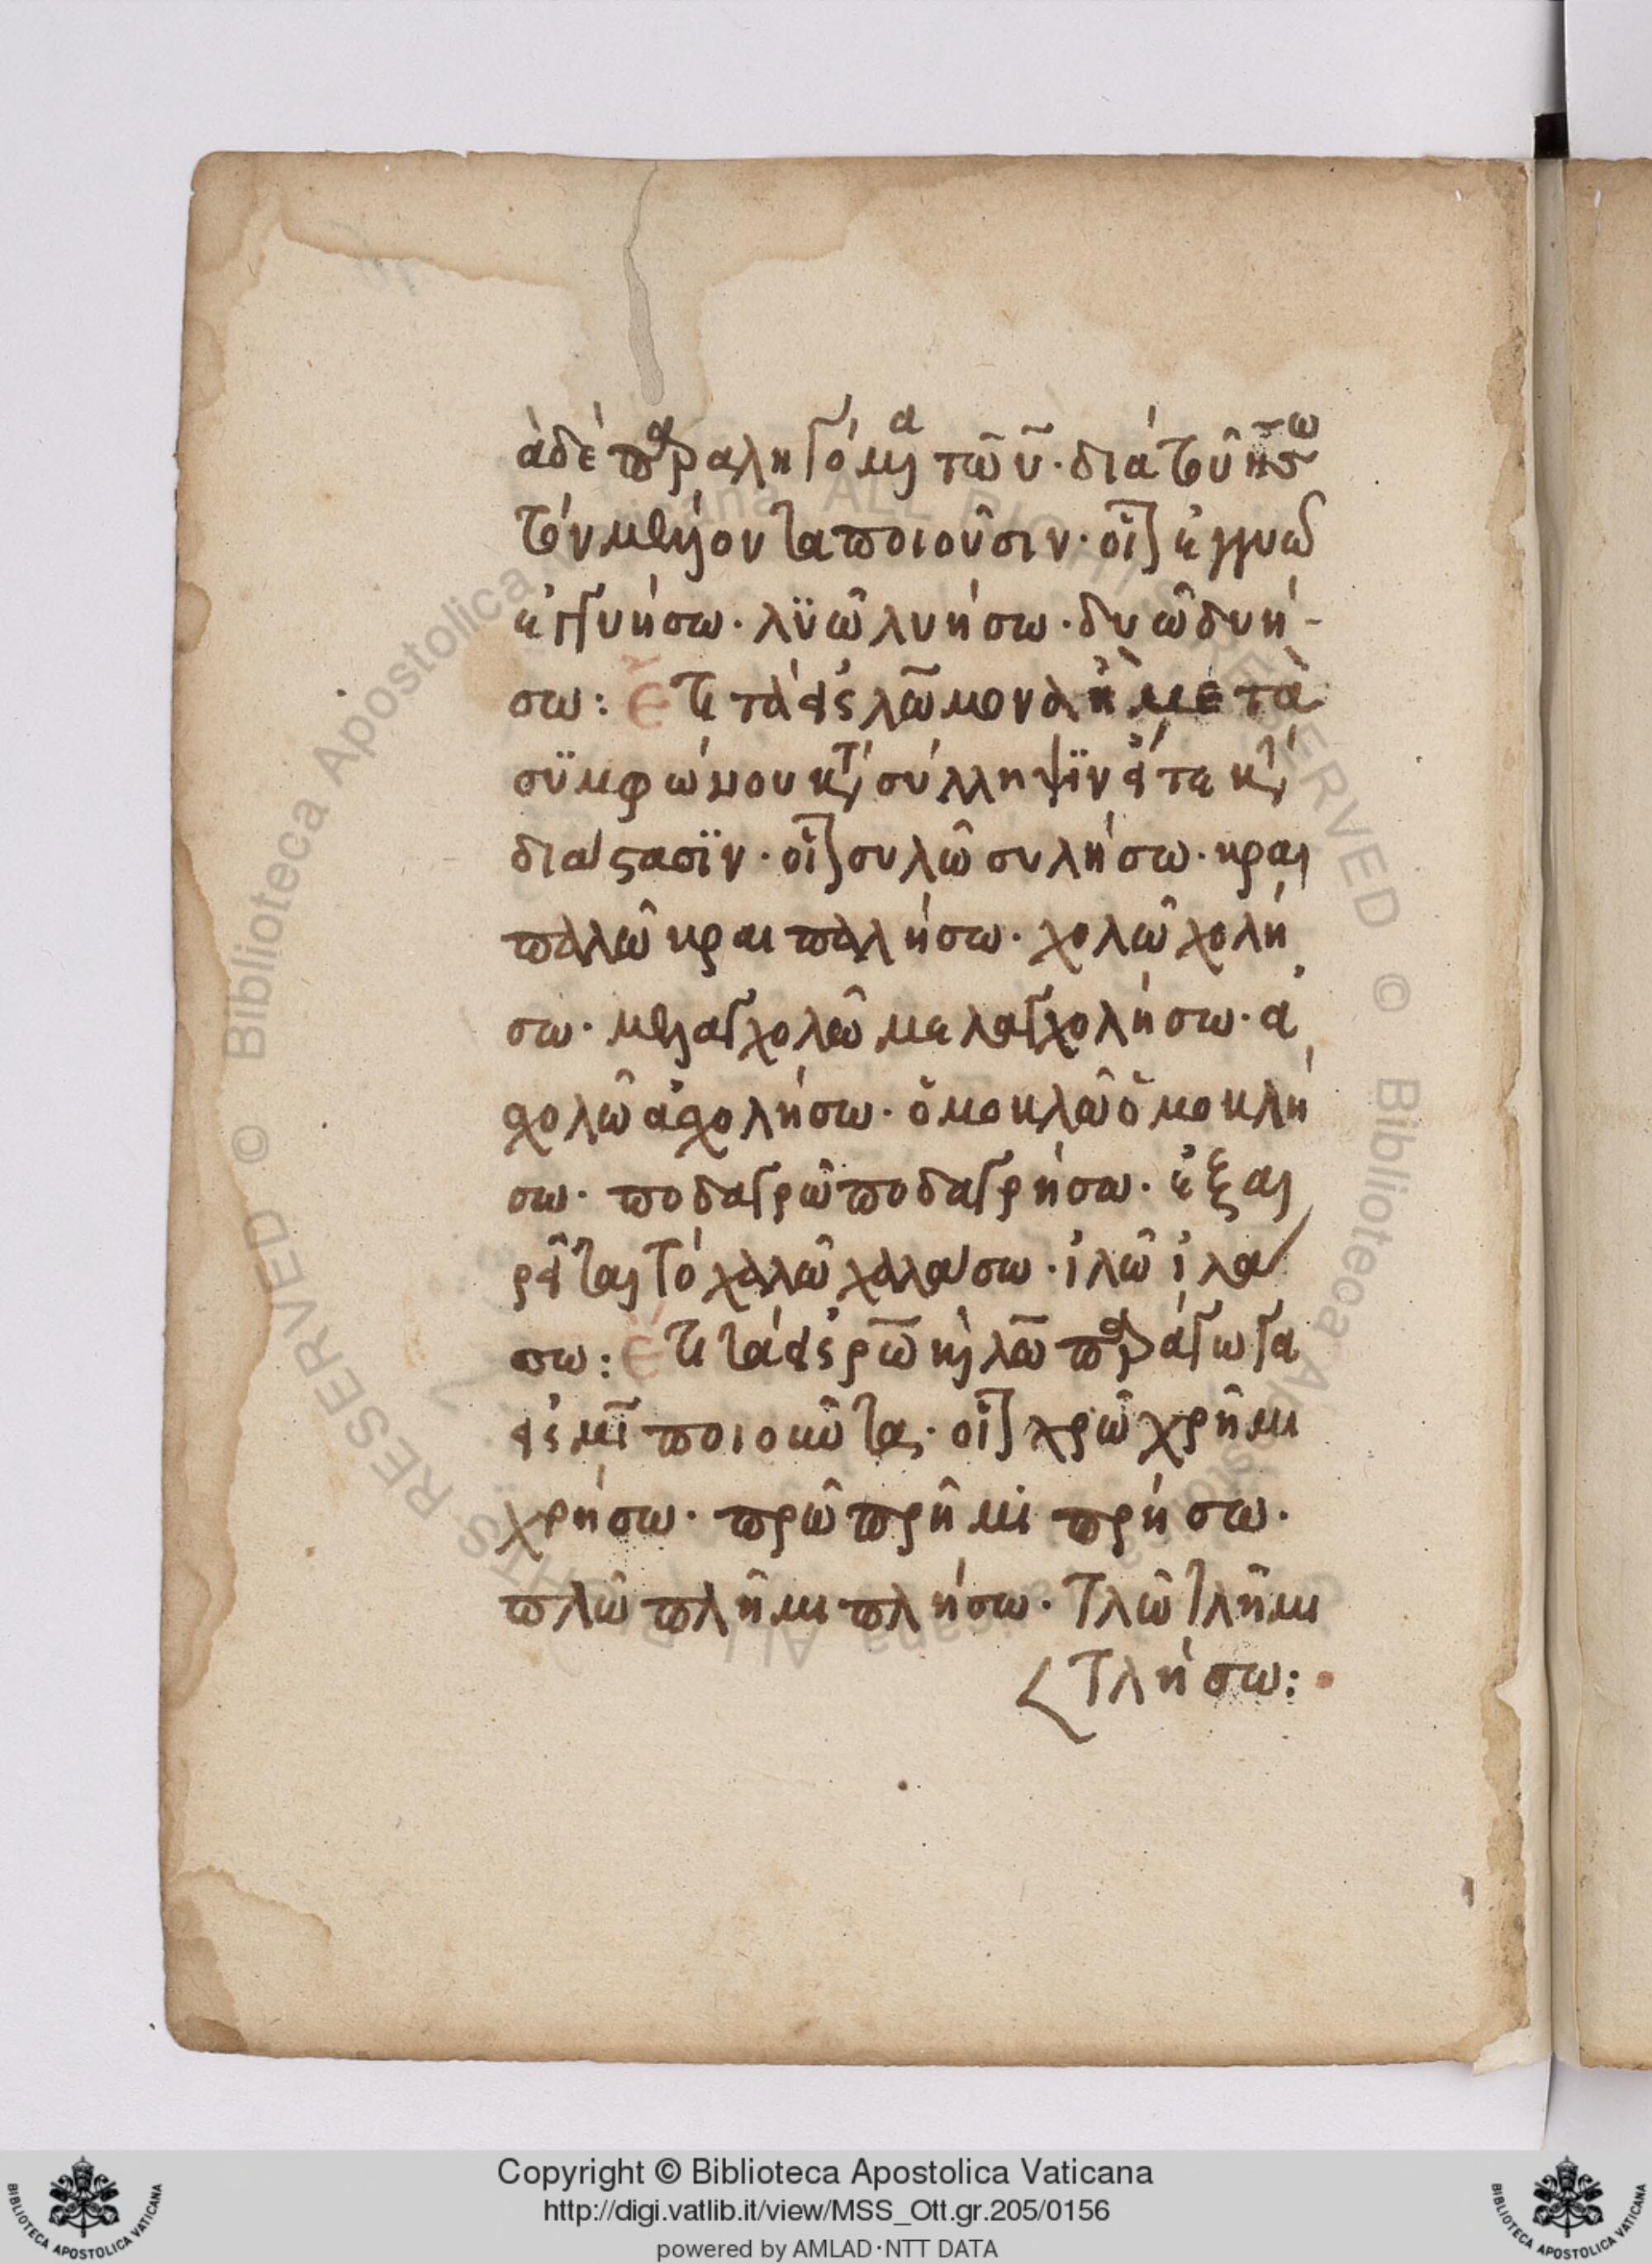 ἀδὲ παραλήγομαι τῶ υ· διὰ τοῦ ησω
τὸν μέλλοντα ποιοῦσιν· οἷον ἐγγυῶ
ἐγγυήσω· λϋῶ λυήσω· δυῶ δυή-
σω: Ἔτι τὰ εἰς λῶ μονὰ ἢ μετὰ
σϋμφώνου κατὰ σύλληψϊν εἴτε κατὰ
διάστασϊν· οἷον συλῶ συλήσω· κραι
παλῶ κραιπαλήσω· χολῶ χολή
σω· μελαγχολῶ μελαγχολήσω· ἀ
σχολῶ ἀσχολήσω· ὁμοκλῶ ὁμοκλή
σω· ποδαγρῶ ποδαγρήσω· ἐξαι
ρεῖται τὸ χαλῶ χαλάσω· ἱλῶ ἱλά
σω: Ἔτι τὰ εἰς ρῶ καὶ λῶ παράγωγα
εἰς μι ποιοῦντα· οἷον χρῶ χρῆμι
χρήσω· πρῶ πρῆμι πρήσω·
πλῶ πλῆμι πλήσω· τλῶ τλῆμι
τλήσω:
Copyright © Biblioteca Apostolica Vaticana
http://digi.vatlib.it/view/MSS_Ott.gr.205/0156
powered by AMLAD·NTT DATA
BIBLIOTECA APOSTOLICA VATICANA
BIBLIOTECA APOSTOLICA VATICANA